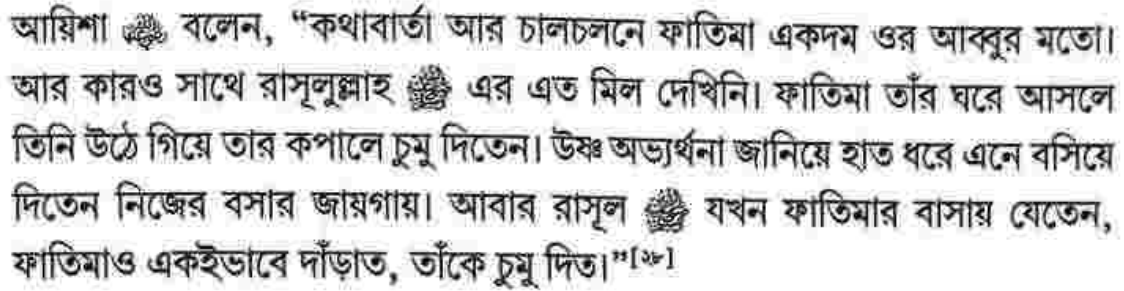 আয়িশা ﵂ বলেন, “কথাবার্তা আর চালচলনে ফাতিমা একদম ওর আব্বুর মতো।
আর কারও সাথে রাসূলুল্লাহ ﷺ এর এত মিল দেখিনি। ফাতিমা তাঁর ঘরে আসলে
তিনি উঠে গিয়ে তার কপালে চুমু দিতেন। উষ্ণ অভ্যর্থনা জানিয়ে হাত ধরে এনে বসিয়ে
দিতেন নিজের বসার জায়গায়। আবার রাসূল ﷺ যখন ফাতিমার বাসায় যেতেন,
ফাতিমাও একইভাবে দাঁড়াত, তাঁকে চুমু দিত।”[২৮]